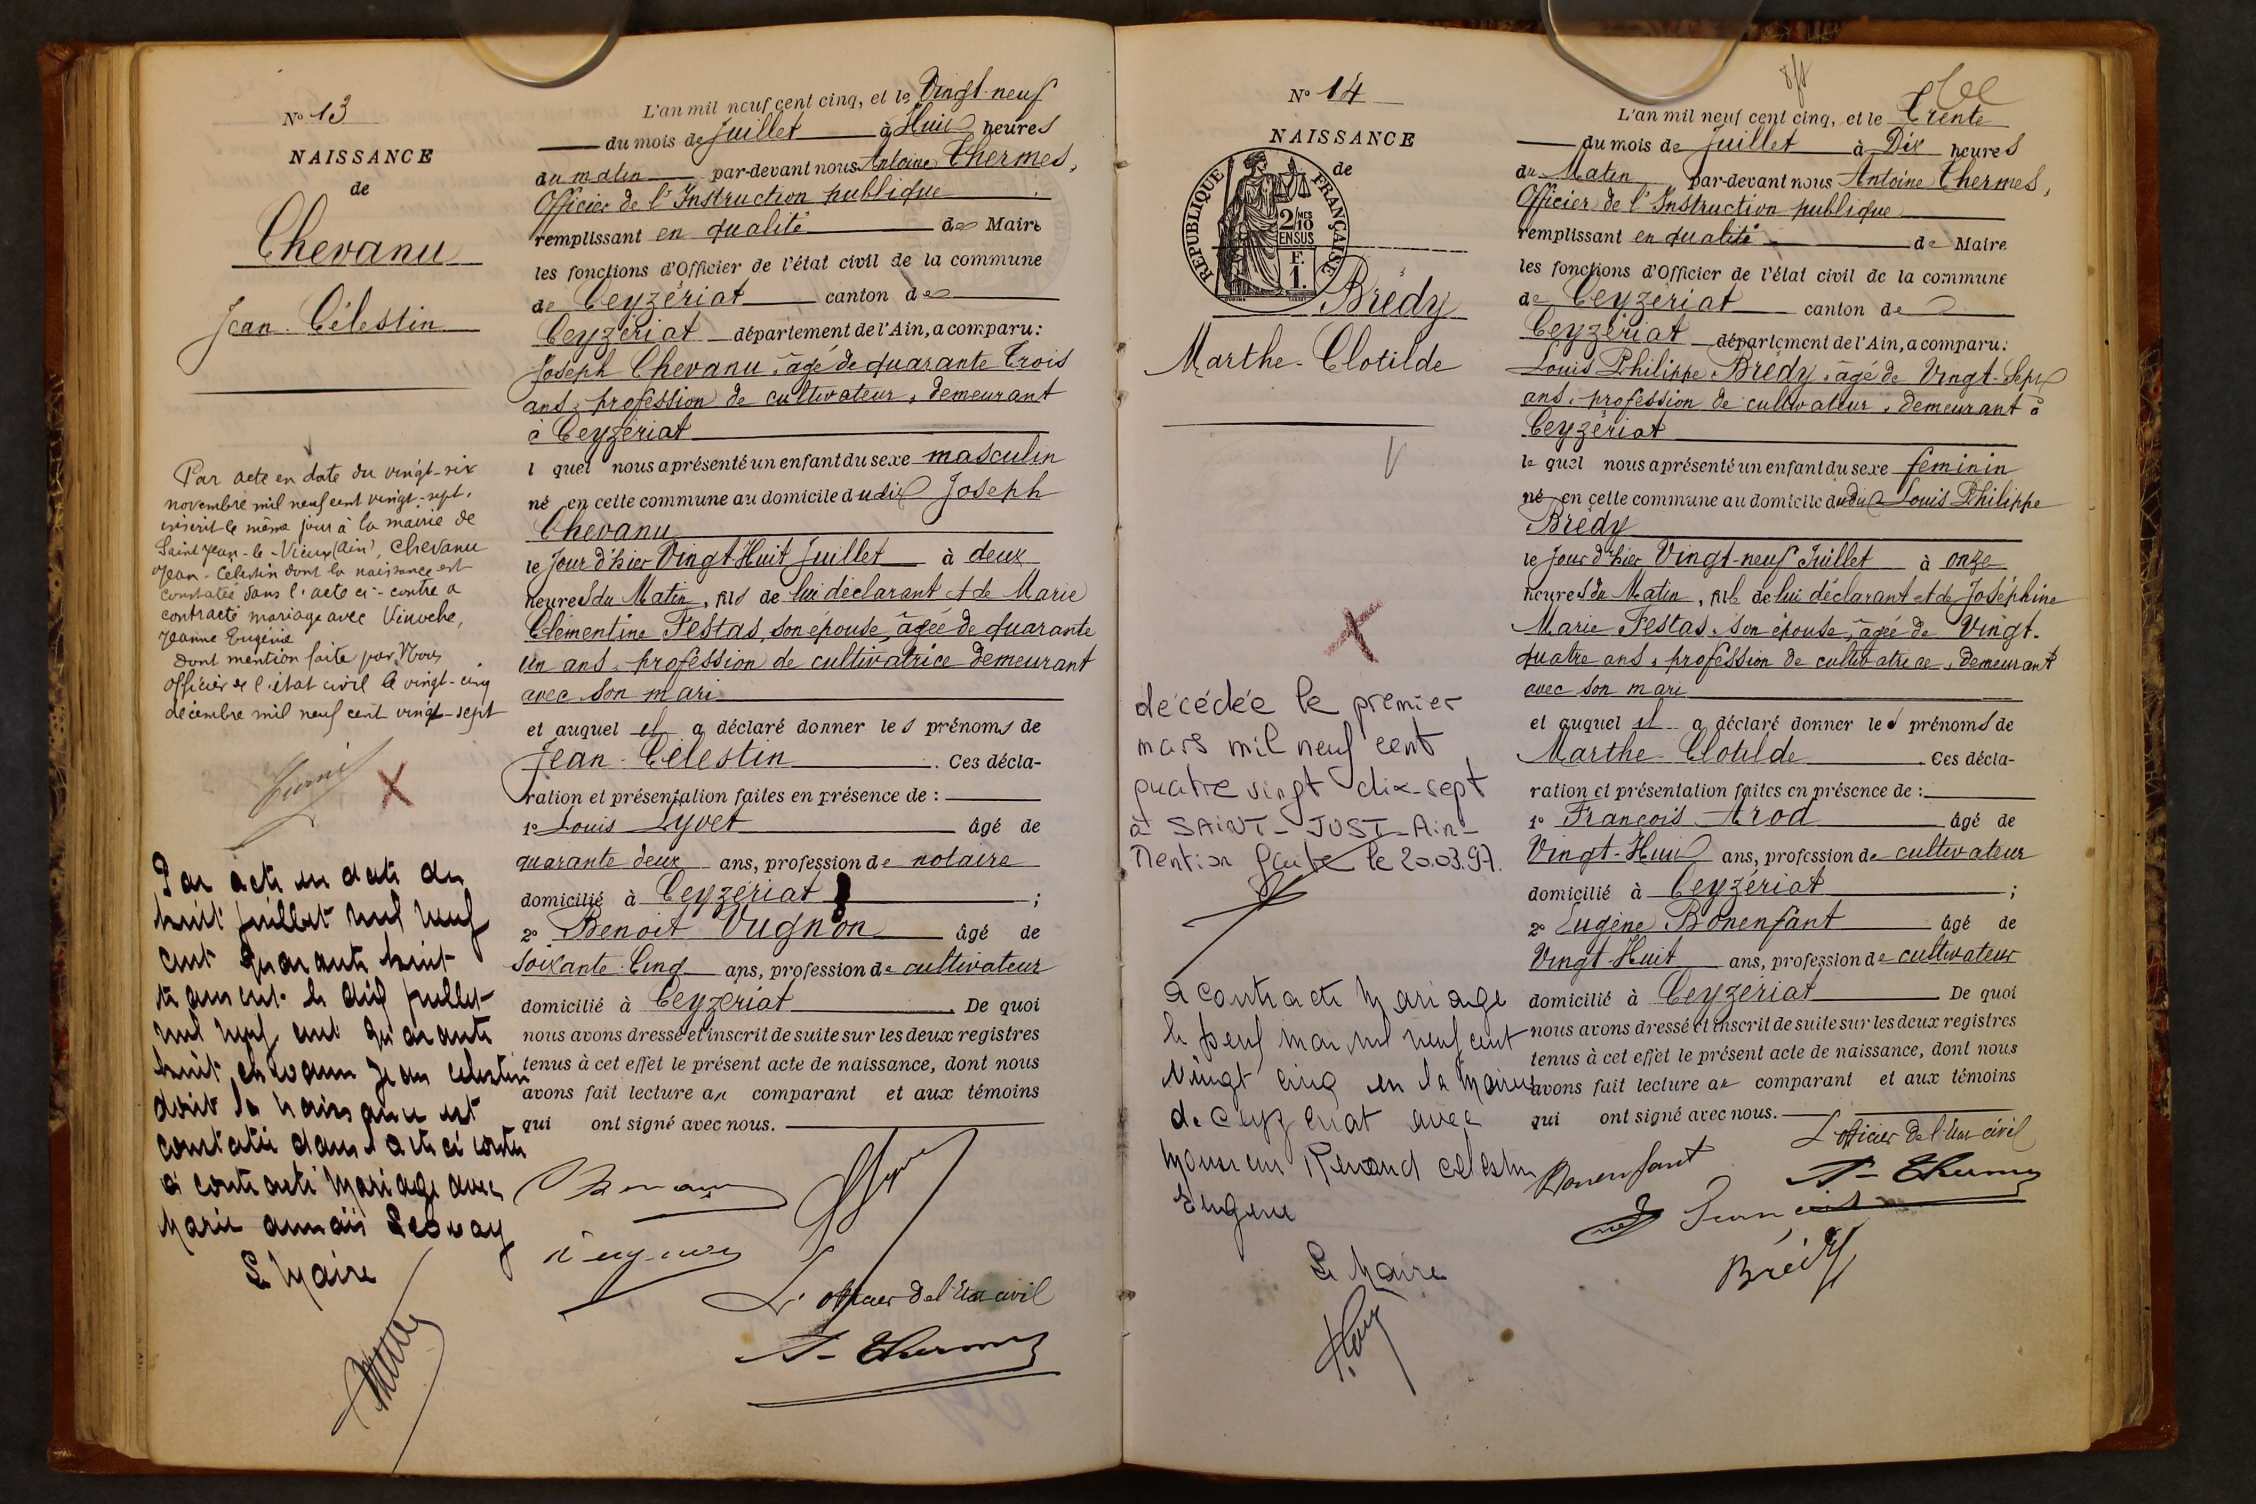 N° 13
NAISSANCE
de
Chevanu
Jean-Célestin
Par acte en date du vingt-six
novembre mil neuf cent vingt-sept,
inscrit le même jour à la mairie de
Saint Jean-le-Vieux (Ain), Chevanu
Jean-Célestin dont la naissance est
constatée dans l'acte ci-contre a
contracté mariage avec
Jeanne Eugénie
Dont mention faite par Nous
officier de l'état civil le vingt-cinq
décembre mil neuf cent vingt-sept
Par acte en date du
huit juillet mil neuf
cent quarante huit
le juillet
mil neuf cent quarante
huit Chevanu Jean Célestin
dont la naissance est
constatée dans l'acte ci contre
a contracté mariage avec
Marie
Le Maire
L'an mil neuf cent cinq, et le Vingt-neuf
du mois de Juillet à Huit heures
du matin par-devant nous Antoine Chermes,
Officier de l'Instruction publique
remplissant en qualité de Maire
les fonctions d'Officier de l'état civil de la commune
de Ceyzériat canton de
Ceyzériat département de l'Ain, a comparu:
Joseph Chevanu, âgé de quarante Trois
ans, profession de cultivateur, demeurant
à Ceyzériat
l quel nous a présenté un enfant du sexe masculin
né en cette commune au domicile dudit Joseph
Chevanu
le Jour d'hier Vingt Huit Juillet à deux
heures du Matin, fils de lui déclarant et de Marie
Clémentine Festas, son épouse, âgée de quarante
un ans, profession de cultivatrice demeurant
avec son mari
et auquel il a déclaré donner les prénoms de
Jean-Célestin. Ces décla-
ration et présentation faites en présence de :
1° Louis Lyvet âgé de
quarante deux ans, profession de notaire
domicilié à Ceyzériat ;
2° Benoit Vugnon âgé de
soixante-Cinq ans, profession de cultivateur
domicilié à Ceyzériat. De quoi
nous avons dressé et inscrit de suite sur les deux registres
tenus à cet effet le présent acte de naissance, dont nous
avons fait lecture au comparant et aux témoins
qui ont signé avec nous.
L'officier de l'Etat civil
A. Chermes
N° 14
NAISSANCE
de
RÉPUBLIQUE FRANÇAISE
2/10MES
EN SUS
F.
1.
Brédy
Marthe-Clotilde
décédée le premier
mars mil neuf cent
quatre vingt dix-sept
à SAINT-JUST-Ain-
Mention faite le 20.03.97.
a contracté mariage
le neuf mai mil neuf cent
vingt cinq en la Mairie
de Ceyzériat avec
Monsieur Renaud Célestin
Eugène
Le Maire
L'an mil neuf cent cinq, et le Trente
du mois de Juillet à Dix heures
du Matin par-devant nous Antoine Chermes,
Officier de l'Instruction publique
remplissant en qualité de Maire
les fonctions d'Officier de l'état civil de la commune
de Ceyzériat canton de
Ceyzériat département de l'Ain, a comparu:
Louis Philippe Brédy, âgé de Vingt-Sept
ans, profession de cultivateur, demeurant à
Ceyzériat
le quel nous a présenté un enfant du sexe féminin
né en cette commune au domicile dudit Louis Philippe
Brédy
le Jour d'hier Vingt-neuf Juillet à onze
heures du Matin, fille de lui déclarant et de Joséphine
Marie Festas, son épouse, âgée de Vingt-
quatre ans, profession de cultivatrice, demeurant
avec son mari
et auquel il a déclaré donner les prénoms de
Marthe-Clotilde. Ces décla-
ration et présentation faites en présence de :
1° François Arod âgé de
Vingt-Huit ans, profession de cultivateur
domicilié à Ceyzériat ;
2° Eugène Bonenfant âgé de
Vingt-Huit ans, profession de cultivateur
domicilié à Ceyzériat. De quoi
nous avons dressé et inscrit de suite sur les deux registres
tenus à cet effet le présent acte de naissance, dont nous
avons fait lecture au comparant et aux témoins
qui ont signé avec nous.
L'officier de l'Etat civil
Bonenfant
A. Chermes
François
Brédy